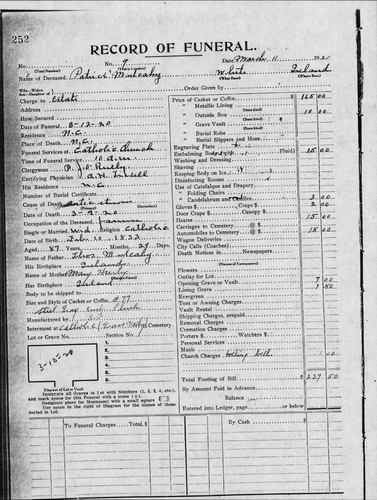 252
RECORD OF FUNERAL.
No. (Total Number) No. 7 (Yearly Number) Date March 11 1920
Name of Deceased Patrick Mulcahy White Ireland
(What Race) (Where Born)
Charge to Estate
Order Given by
How Secured
Date of Funeral 3-12-20
Place of Death N.C.
Funeral Services at Catholic Church
Time of Funeral Service 10 a.m.
Clergyman P. J.
Certifying Physician
His Residence N.C.
Number of Burial Certificate
Cause of Death
Date of Death
Occupation of the Deceased Farmer
Single or Married Wid. Religion Catholic
Date of Birth Feb. 10 1833
Aged 87 Years Months 29 Days
Name of Father Thos. Mulcahy
His Birthplace Ireland
Name of Mother Mary
Her Birthplace Ireland
Body to be shipped to
Size and Style of Casket or Coffin #77
Steel Gray
Manufactured by
Interment at Catholic Cemetery
Lot or Grave No. Section No.
3-12-20
1
2
3
4
5
6
Diagram of Lot or Vault
Designate all Graves in Lot with Numbers (1, 2, 3, 4, etc.), and mark space for this Funeral with a cross (+).
Designate place for Monument with a small square
Use space to the right of Diagram for the names of those buried in Lot.
Price of Casket or Coffin $ 165 00
" Metallic Lining
" Outside Box 10 00
" Grave Vault
" Burial Robe
" Burial Slippers and Hose
Engraving Plate
Embalming Body Fluid) 15 00
Washing and Dressing
Shaving
Keeping Body on Ice
Disinfecting Rooms
Use of Catafalque and Drapery
" Folding Chairs
" Candelabrum and Candles 3 00
Gloves $ 2 00
Door Crape $ Crape $
Hearse 15 00
Carriages to Cemetery @ $
Automobiles to Cemetery @ $ 18 00
Wagon Deliveries
City Calls (Coaches)
Death Notices in Newspapers
Flowers
Outlay for Lot
Opening Grave or Vault 7 00
Lining Grave 1 50
Evergreen
Tent or Awning Charges
Vault Rental
Shipping Charges, prepaid
Removal Charges
Cremation Charges
Porters $ Watchers $
Personal Services
Music
Church Charges tolling bell 1 00
Total Footing of Bill $ 237 50
By Amount Paid in Advance
Balance
Entered into Ledger, page or below
To Funeral Charges
By Cash